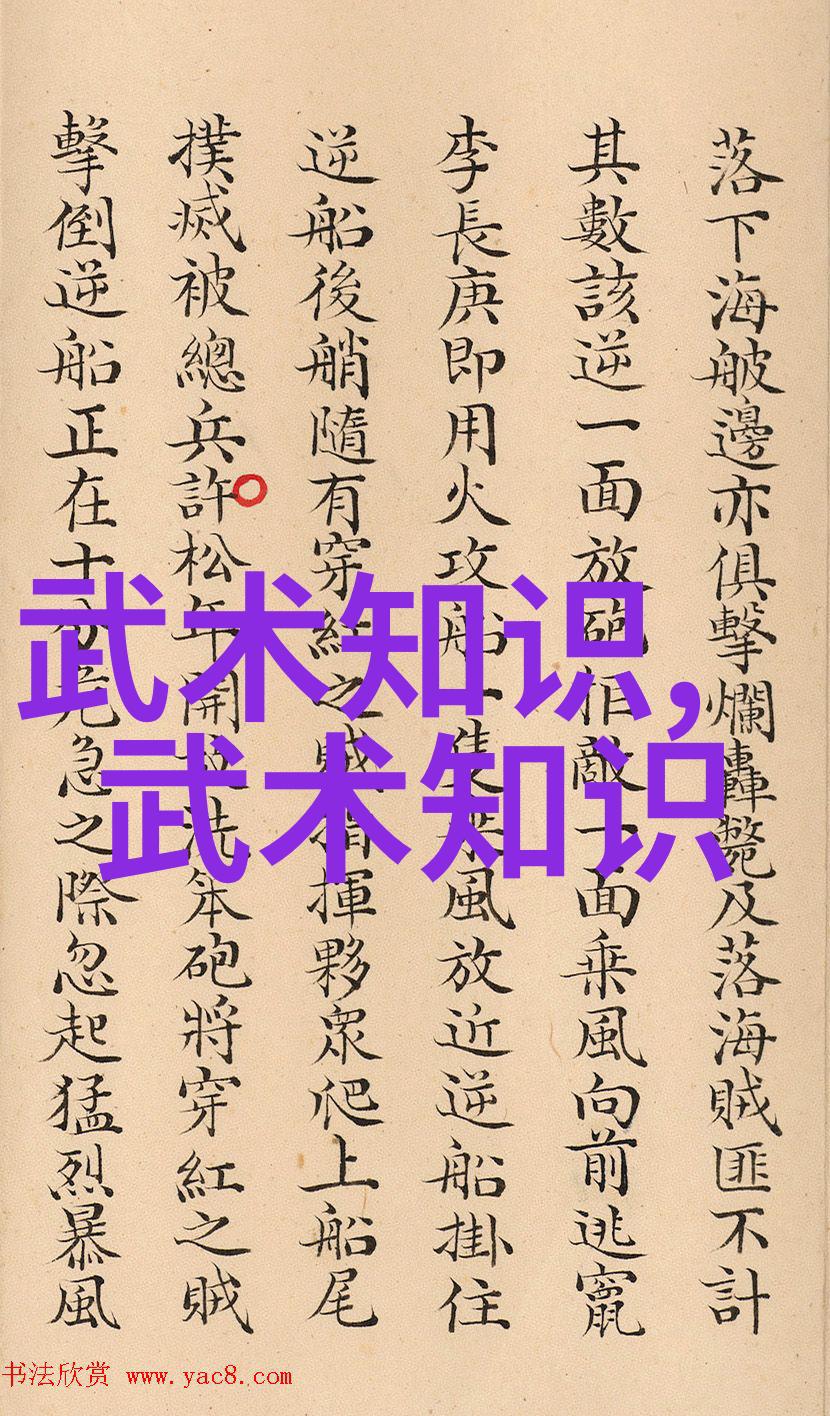 落下海艍邊亦俱擊爛轟斃及落海賊匪不計
其數該逆一面放砲拒敵一面乘風向前逃竄
李長庚即用火攻船一隻乘風放近逆船掛住
逆船後艄隨有穿紅之賊指揮夥眾爬上船尾
撲滅被總兵許松年開放洗笨砲將穿紅之賊
擊倒逆船正在十分危急之際忽起猛烈暴風
武术知识,
武术知识
书法欣赏 www.yac8.com